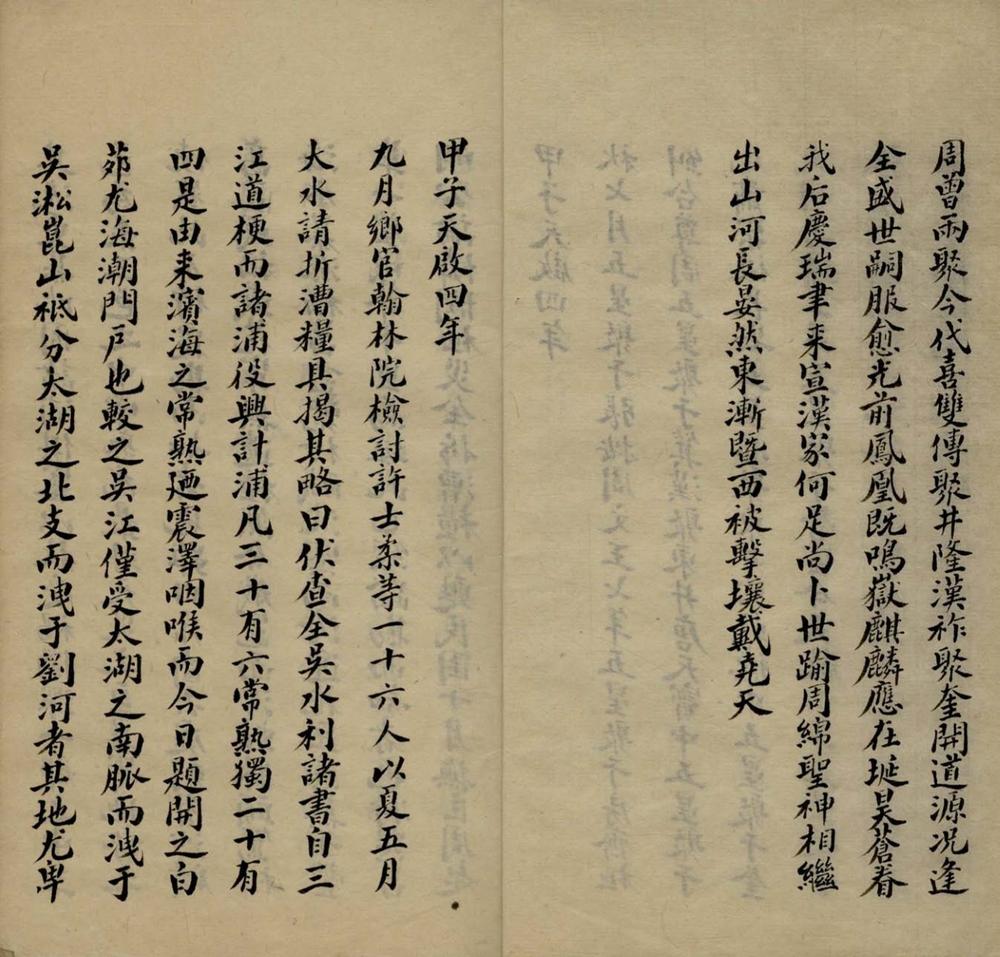 周曾兩聚今代喜雙傳聚井隆漢祚聚奎開道源况逢
全盛世嗣服愈光前鳳凰既鳴嶽麒麟應在埏昊蒼眷
我后慶瑞聿来宣漢家何足尚卜世踰周綿聖神相繼
出山河長晏然東漸暨西被擊壤戴堯天
甲子天啟四年
九月鄉官翰林院檢討許士柔等一十六人以夏五月
大水請折漕糧具揭其略曰伏查全吳水利諸書自三
江道梗而諸浦役興計浦凡三十有六常熟獨二十有
四是由来濱海之常熟廼震澤咽喉而今日題開之白
茆尤海潮門戶也較之吳江僅受太湖之南脈而洩于
吳淞崑山祗分太湖之北支而洩于劉河者其地尤卑